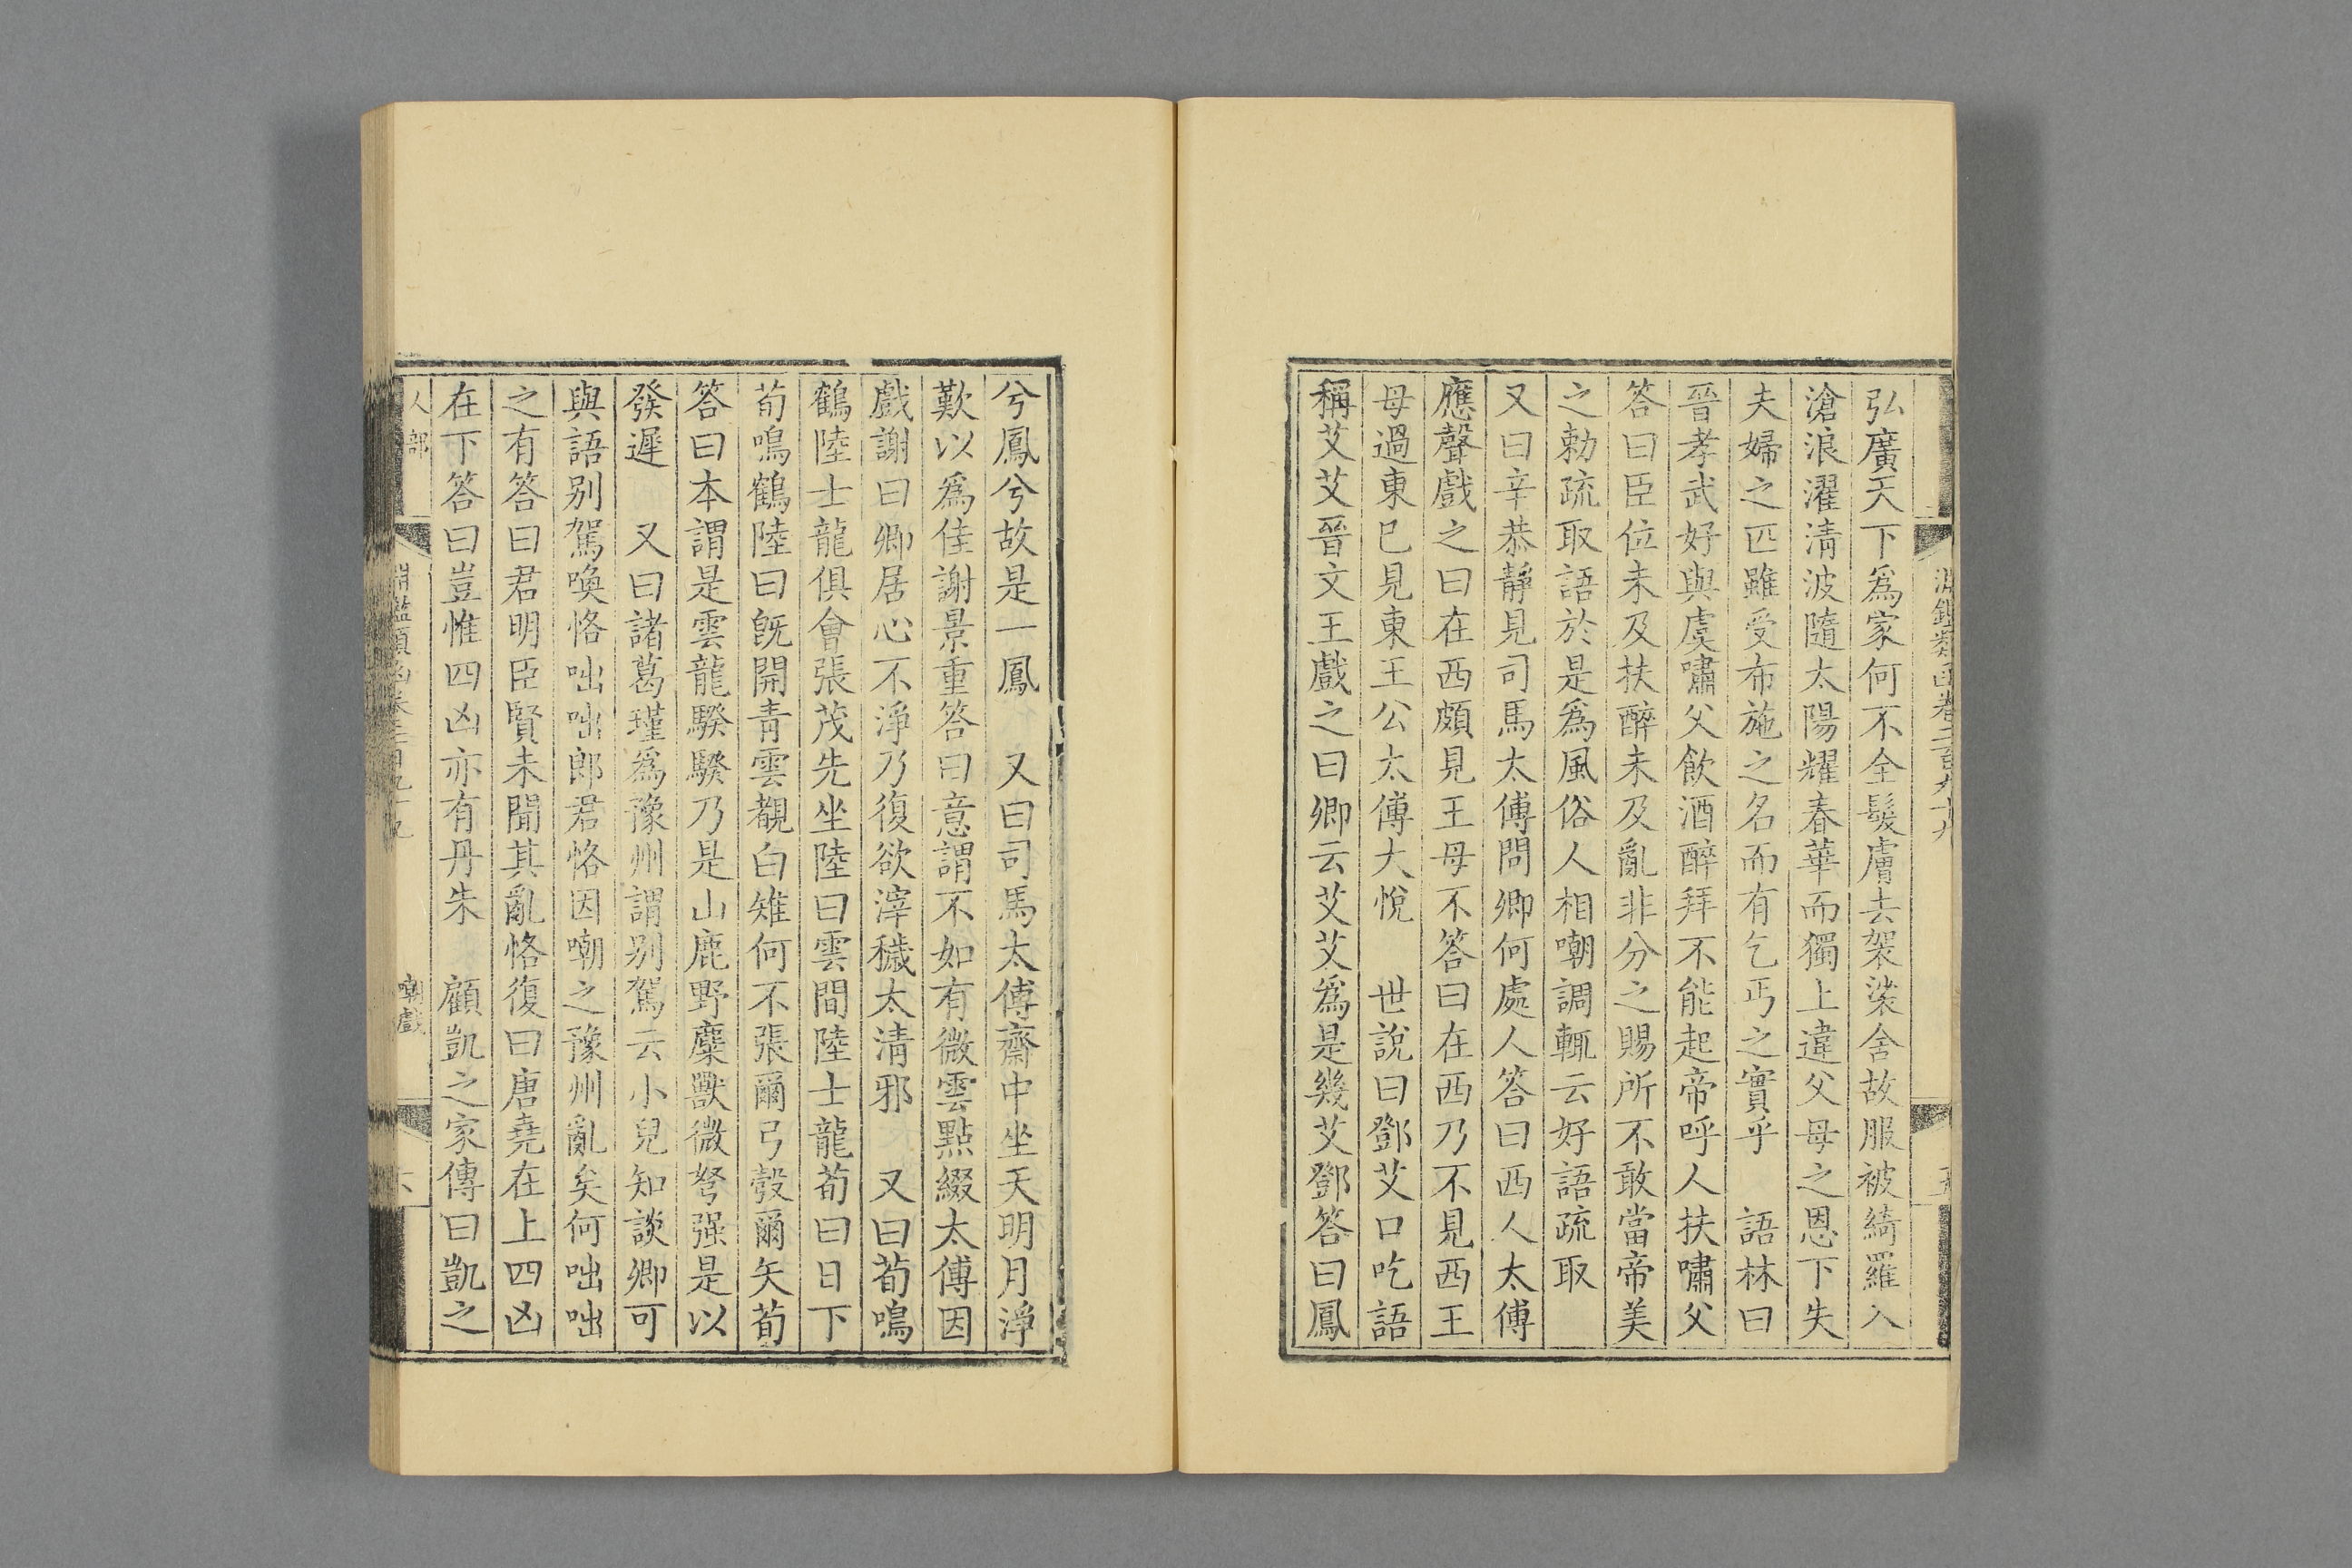 弘廣天下爲家何不全髮膚去袈裟舍故服被綺羅入
滄浪濯清波隨太陽耀春華而獨上違父母之恩下失
夫婦之匹雖受布施之名而有乞丐之實乎　語林曰
晉孝武好與虞嘯父飲酒醉拜不能起帝呼人扶嘯父
答曰臣位未及扶醉未及亂非分之賜所不敢當帝美
之勅疏取語於是爲風俗人相嘲調輒云好語疏取
又曰辛恭靜見司馬太傅問卿何處人答曰西人太傅
應聲戲之曰在西頗見王母不答曰在西乃不見西王
母過東已見東王公太傅大悅　世說曰鄧艾口吃語
稱艾艾晉文王戲之曰卿云艾艾爲是幾艾鄧答曰鳳
兮鳳兮故是一鳳　又曰司馬太傅齋中坐天明月淨
歎以爲佳謝景重答曰意謂不如有微雲點綴太傅因
戲謝曰卿居心不淨乃復欲滓穢太清邪　又曰荀鳴
鶴陸士龍俱會張茂先坐陸曰雲間陸士龍荀曰日下
荀鳴鶴陸曰旣開青雲覩白雉何不張爾弓彀爾矢荀
答曰本謂是雲龍騤騤乃是山鹿野麋獸微弩强是以
發遲　又曰諸葛瑾爲豫州謂别駕云小兒知談卿可
與語别駕喚恪咄咄郎君恪因嘲之豫州亂矣何咄咄
之有答曰君明臣賢未聞其亂恪復曰唐堯在上四凶
在下答曰豈惟四凶亦有丹朱　顧凱之家傳曰凱之
人部
嘲戲